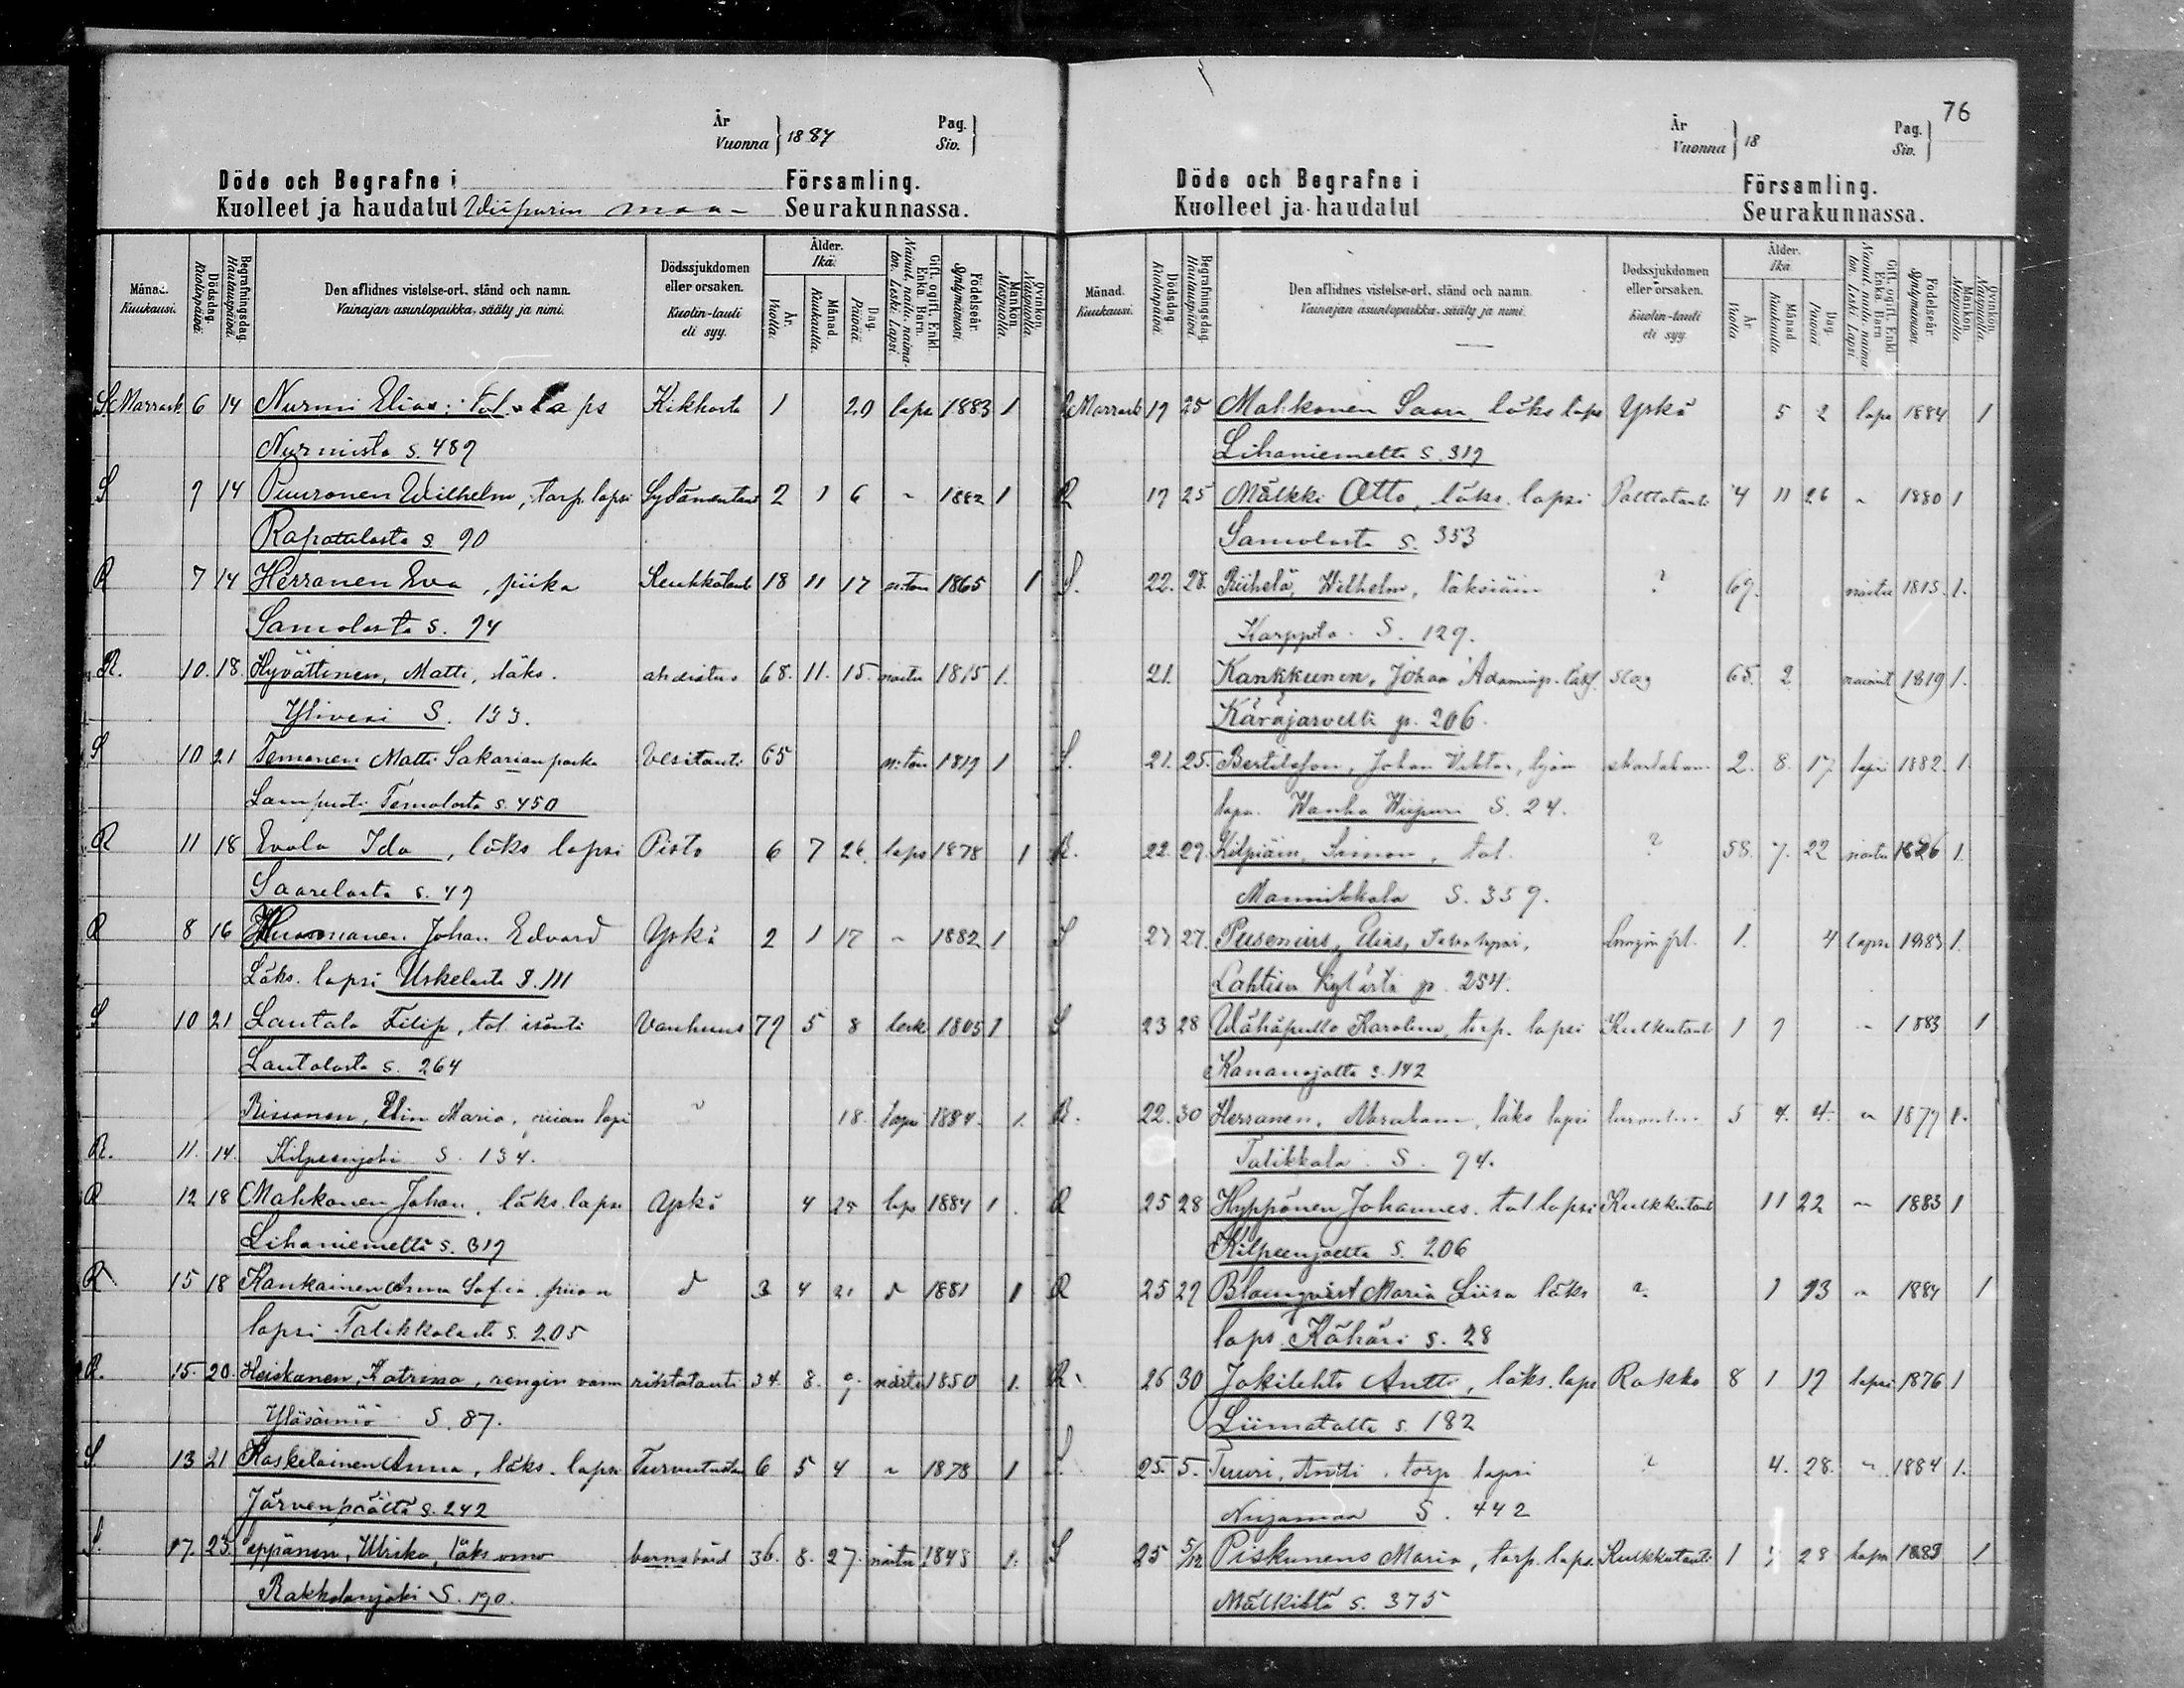 År
Vuonna } 1884
Pag.
Siv. }
Döde och Begrafne i Församling.
Kuolleet ja haudatut Wiipurin maa- Seurakunnassa.
Månad. Kuukausi.
Dödsdag. Kuolinpäivä.
Begrafningsdag. Hautauspäivä.
Den aflidnes vistelse-ort, stånd och namn.
Vainajan asuntopaikka, sääty ja nimi.
Dödssjukdomen eller orsaken.
Kuolin-tauti eli syy.
Ålder. Ikä.
År. Vuotta.
Månad. Kuukautta.
Dag. Päivää.
Gift, ogift, Enkl. Enka. Barn.
Nainut, naitu, naimaton. Leski. Lapsi.
Födelseår. Syntymävuosi.
Mankön. Miespuolta.
Qvinkön. Naispuolta.
S Marrask. 6 14 Nurmi Elias, tal. laps Kikhosta 1 20 laps 1883 1
Nurmista s. 487
S 7 14 Puuronen Wilhelm, torp. lapsi Sydämentaut 2 1 6 " 1882 1
Rapattilasta s. 90
R 7 14 Herranen Eva, piika Keuhkotauti 18 11 17 n:ton 1865 1
Samolasta s. 94
R. 10. 18. Hyvättinen, Matti, läks. ahdistus 68. 11. 15. naitu 1815 1.
Ylivesi S. 133.
S 10 21 Temonen Matti Sakarian poika Vesitauti 65 n:ton 1819 1
Temolasta s. 450
R 11 18 Evala Ida, läks lapsi Pisto 6 7 26. laps 1878 1
Saarelasta s. 47
R 8 16 Johan Edvard Yskä 2 1 17 " 1882 1
Läks. lapsi Urkelasta S. 111
S 10 21 Lautala Filip, tal. isäntä Vanhuus 79 5 8 lesk 1805 1
Lautalasta s. 264
Rissanen, Elin Maria, piian lapsi " 18. lapsi 1884. 1.
R. 11. 14. Kilpeenjoki S. 134.
R 12 18 Mahkonen Johan, läks. lapsi Yskä 4 25 laps 1884 1
Lihaniemeltä s. 317
R 15 18 Kankainen Anna Sofia piian d 3 4 21 d 1881 1
lapsi Talikkalasta s. 205
R. 15. 20. Heiskanen, Katrina, rengin vaim 34. 8. 9 naitu 1850 1.
Yläsäiniö S. 87.
S 13 21 Kaskelainen Anna, läks. lapsi 6 5 4 " 1878 1
Järvenpäältä s. 242
S. 17. 23. Leppänen, Ulrika, läks vmo barnsbörd 36. 8. 27. naitu 1848 1.
Rakkolanjoki S. 190.
76
År
Vuonna } 18
Pag.
Siv. }
Döde och Begrafne i Församling.
Kuolleet ja haudatut Seurakunnassa.
Månad. Kuukausi.
Dödsdag. Kuolinpäivä.
Begrafningsdag. Hautauspäivä.
Den aflidnes vistelse-ort, stånd och namn.
Vainajan asuntopaikka, sääty ja nimi.
Dödssjukdomen eller orsaken.
Kuolin-tauti eli syy.
Ålder. Ikä
År Vuotta
Månad Kuukautta
Dag. Päivää
Gift, ogift, Enkl. Enka. Barn
Nainut, naitu, naimaton. Leski. Lapsi.
Födelseår. Syntymävuosi.
Mankön. Miespuolta.
Qvinkön. Naispuolta.
R Marrask 17 25 Mahkonen Saara läks laps Yskä 5 2 laps 1884 1
Lihaniemeltä s. 317
R 17 25 Mälkki Otto, läks. lapsi Polttotauti 4 11 26 " 1880 1
Samolasta s. 353
S. 22. 28. Riihelä, Wilhelm, läksiäin ? 69. naitu 1815. 1.
Karppila. S. 129.
21. Kankkunen, Johan Adaminp. läks. slag 65. 2 nainut 1819 1.
Käräjärveltä p. 206.
S. 21. 25. Bertilsson, Johan Viktor, työm 2. 8. 17. lapsi 1882. 1.
laps. Wanha Wiipuri S. 24.
R. 22. 27. Kilpiäin, Simon, tal. ? 58. 7. 22 naitu 1826 1.
Mannikkala S. 359.
S 23 27. Pusenius, Elias, 1. 4 lapsi 1883 1.
Lahtisen Kylästä p. 254.
S 23 28 Wähäpullo Karolina, torp. lapsi Kulkutauti 1 7 " 1883 1
Kananojalta s. 142
R. 22. 30 Herranen, Abraham, läks lapsi 5 4. 4. " 1879 1.
Talikkala. S. 94.
R 25 28 Hyppönen Johannes, tal. lapsi Kulkkutauti 11 22 " 1883 1
Kilpeenjoelta s. 206
R 25 27 Blomqvist Maria Liisa läks ? 1 23 " 1884 1
laps Kähäri s. 28
R. 26 30 Jokilehto Antti, läks. laps Rokko 8 1 17 lapsi 1876 1
Liimatalta s. 182
S. 25. 5. Tuuri, Antti, torp lapsi ? 4. 28. " 1884 1.
Nuijamaa S. 442
S 25 5/12 Piskunens Maria, torp. laps. Kulkkutauti 1 28 lapsi 1883 1
Mälkiltä s. 375